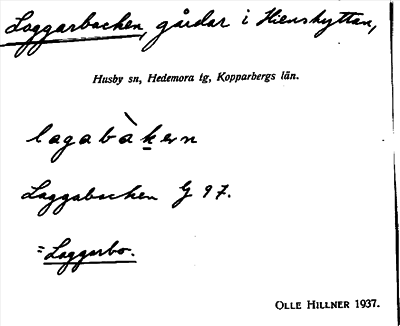 Laggarbacken, gårdar i Hienshyttan,
Husby sn, Hedemora tg, Kopparbergs län.
lagabàkern
Laggabacken G 97.
= Laggarbo.
OLLE HILLNER 1937.